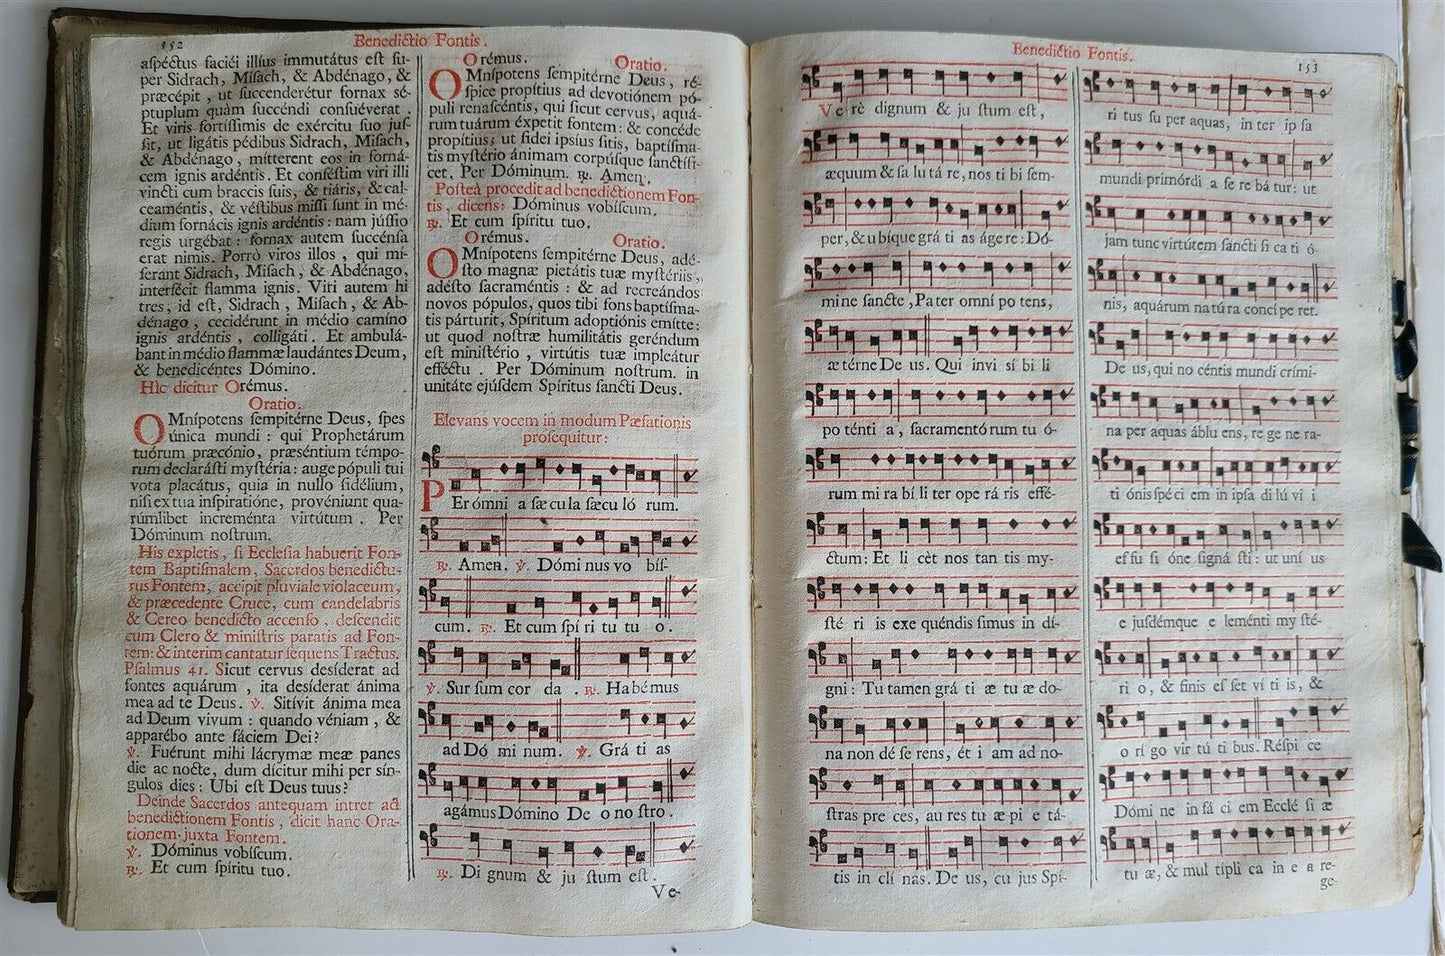 152
Benedictio Fontis.
aſpéctus faciéi illíus immutátus eſt ſu-
per Sidrach, Miſach, & Abdénago, &
præcépit, ut ſuccenderétur fornax ſé-
ptuplum quàm ſuccéndi conſuéverat.
Et viris fortíſſimis de exércitu ſuo juſ-
ſit, ut ligátis pédibus Sidrach, Miſach,
& Abdénago, mítterent eos in forná-
cem ignis ardéntis. Et conféſtim viri illi
vincti cum braccis ſuis, & tiáris, & cal-
ceaméntis, & véſtibus miſſi ſunt in mé-
dium fornácis ignis ardéntis: nam júſſio
regis urgébat: fornax autem ſuccénſa
erat nimis. Porrò viros illos, qui mí-
ſerant Sidrach, Miſach, & Abdénago,
interfécit flamma ignis. Viri autem hi
tres, id eſt, Sidrach, Miſach, & Ab-
dénago, cecidérunt in médio camíno
ignis ardéntis, colligáti. Et ambulá-
bant in médio flammæ laudántes Deum,
& benedicéntes Dómino.
Hìc dicitur Orémus.
Oratio.
OMnípotens ſempitérne Deus, ſpes
única mundi: qui Prophetárum
tuórum præcónio, præséntium témpo-
rum declaráſti myſtéria: auge pópuli tui
vota placátus, quia in nullo fidélium,
niſi ex tua inſpiratióne, provéniunt qua-
rúmlibet increménta virtútum. Per
Dóminum noſtrum.
His expletis, ſi Eccleſia habuerit Fon-
tem Baptiſmalem, Sacerdos benedictu-
rus Fontem, accipit pluviale violaceum,
& præcedente Cruce, cum candelabris
& Cereo benedicto accenſo, deſcendit
cum Clero & miniſtris paratis ad Fon-
tem: & interim cantatur ſequens Tractus.
Pſalmus 41. Sicut cervus desíderat ad
fontes aquárum, ita desíderat ánima
mea ad te Deus. ℣. Sitívit ánima mea
ad Deum vivum: quando véniam, &
apparébo ante fáciem Dei?
℣. Fuérunt mihi lácrymæ meæ panes
die ac nocte, dum dícitur mihi per sín-
gulos dies: Ubi eſt Deus tuus?
Deinde Sacerdos antequam intret ad
benedictionem Fontis, dicit hanc Ora-
tionem juxta Fontem.
℣. Dóminus vobíſcum.
℟. Et cum ſpíritu tuo.
Orémus. Oratio.
OMnípotens ſempitérne Deus, ré-
ſpice propítius ad devotiónem pó-
puli renaſcéntis, qui ſicut cervus, aquá-
rum tuárum éxpetit fontem: & concéde
propítius, ut fidei ipſíus ſitis, baptíſma-
tis myſtério ánimam corpúſque ſanctífi-
cet. Per Dóminum. ℟. Amen.
Poſteà procedit ad benedictionem Fon-
tis, dicens: Dóminus vobíſcum.
℟. Et cum ſpíritu tuo.
Orémus. Oratio.
OMnípotens ſempitérne Deus, adé-
ſto magnæ pietátis tuæ myſtériis,
adéſto ſacraméntis: & ad recreándos
novos pópulos, quos tibi fons baptíſma-
tis párturit, Spíritum adoptiónis emítte:
ut quod noſtræ humilitátis geréndum
eſt miniſtério, virtútis tuæ impleátur
efféctu. Per Dóminum noſtrum. in
unitáte ejúſdem Spíritus ſancti Deus.
Elevans vocem in modum Præfationis
proſequitur:
PEr ómni a ſæ cu la ſæcu ló rum.
℟. Amen. ℣. Dómi nus vo bíſ-
cum. ℟. Et cum ſpí ri tu tu o.
℣. Sur ſum cor da. ℟. Ha bémus
ad Dó mi num. ℣. Grá ti as
agámus Dómino De o no ſtro.
℟. Di gnum & ju ſtum eſt.
Ve-
Benedictio Fontis.
153
Ve rè dignum & ju ſtum eſt,
æquum & ſa lu tá re, nos ti bi ſem-
per, & u bíque grá ti as ágere: Dó-
mi ne ſancte, Pa ter omní po tens,
æ térne De us. Qui invi sí bi li
po ténti a, ſacramentó rum tu ó-
rum mi ra bí li ter ope rá ris effé-
ctum: Et li cèt nos tan tis my-
ſté ri is exe quéndis ſimus in dí-
gni: Tu tamen grá ti æ tu æ do-
na non dé ſe rens, ét i am ad no-
ſtras pre ces, au res tu æ pi e tá-
tis in clí nas. De us, cu jus Spí-
ri tus ſu per aquas, in ter ip ſa
mundi primórdi a fe re bá tur: ut
jam tunc virtútem ſancti fi ca ti ó-
nis, aquárum na tú ra conci pe ret.
De us, qui no céntis mundi crími-
na per aquas áblu ens, re ge ne ra-
ti ónis ſpé ci em in ipſa di lú vi i
ef fu ſi óne ſigná ſti: ut uní us
e juſdémque e leménti my ſté-
ri o, & finis eſ ſet ví ti is, &
o rí go vir tú ti bus. Réſpi ce
Dómi ne in fá ci em Ecclé ſi æ
tu æ, & mul típli ca in e a re-
ge-